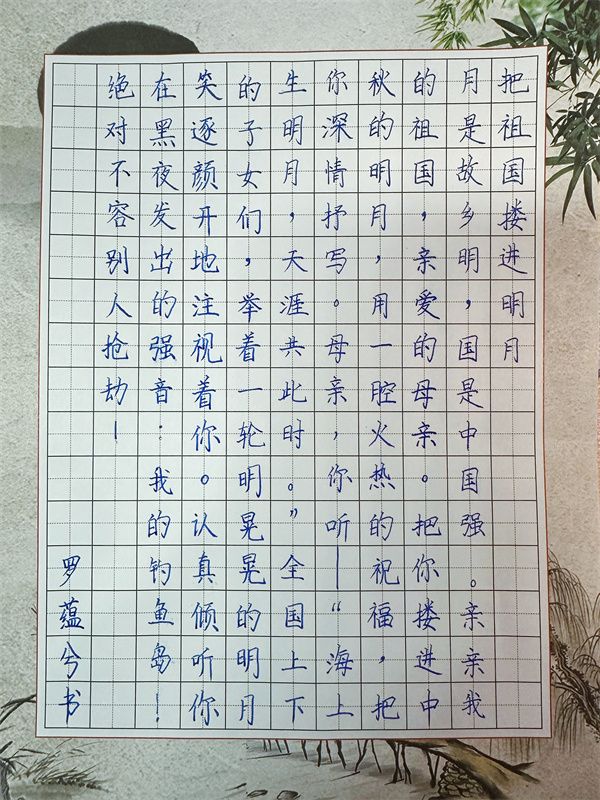 把祖国搂进明月
月是故乡明，国是中国强。亲亲我
的祖国，亲爱的母亲。把你搂进中
秋的明月，用一腔火热的祝福，把
你深情抒写。母亲，你听—“海上
生明月，天涯共此时。”全国上下
的子女们，举着一轮明晃晃的明月
笑逐颜开地注视着你。认真倾听你
在黑夜发出的强音：我的钓鱼岛！
绝对不容别人抢劫！
罗蕴兮书